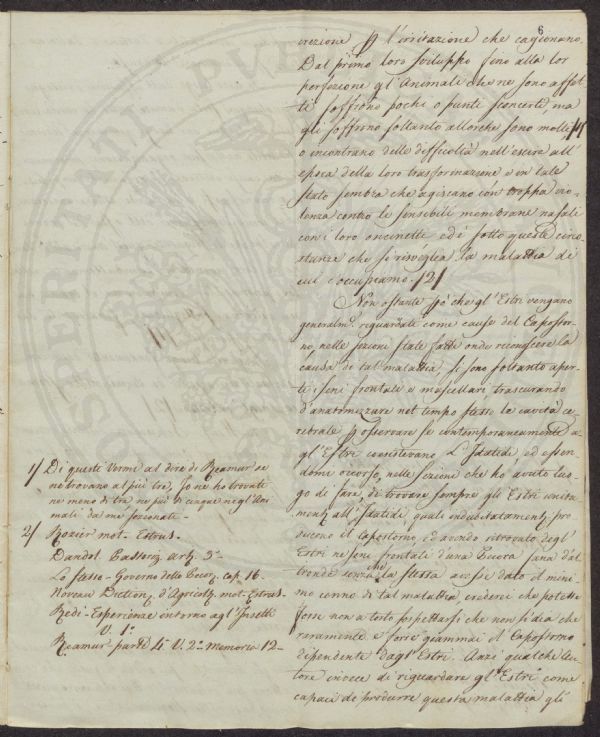 6
crezione p l'irritazione che cagionano.
Dal primo loro sviluppo fino alla lor
perfezione gl'Animali che ne sono affet-
ti soffrono pochi o punti sconcerti, ma
gli soffrono soltanto allorche sono molti 1/
o incontrano delle difficoltà nell'escire all'
epoca della loro trasformazione e in tale
stato sembra che agiscano con troppa vio-
lenza contro le sensibili membrane nasali
con i loro oncinetti ed è sotto queste circo-
stanze che si risveglia la malattia di
cui c'occupiamo. 2/
Non ostante pò che gl'Estri vengano
generalm.e riguardati come cause del Capostor-
no, nelle sezioni state fatte onde riconoscere la
causa di tal malattia, si sono soltanto aper-
ti i seni frontali e mascellari, trascurando
d'anatomizzare nel tempo stesso la cavità ce-
rebrale p osservare se contemporaneamente a-
gl'Estri coesistevano l'Idatidi, ed essen-
domi occorso, nelle sezioni che ho avuto luo-
go di fare, di trovare sempre gli Estri unita-
mente all'Idatidi, quali indubitatamente pro-
ducono il capostorno, ed avendo ritrovato degl'
Estri ne seni frontali d'una Pecora sana d'al-
tronde senza che la stessa avesse dato il mini-
mo cenno di tal malattia, crederei che potesse
forse non a torto sospettarsi che non si dia che
raramente e forse giammai il Capostorno
dipendente dagl'Estri. Anzi qualche Au-
tore invece di riguardare gl'Estri come
capaci di produrre questa malattia gli
1/ Di questi Vermi al dire di Reamur se
ne trovano al più tre, Io ne ho trovati
ne meno di tre ne più di cinque negl'Ani-
mali da me sezionati.
2/ Rozier mot. Estrus.
Dandol. Art. 3°
Lo stesso - Governo delle Pecore cap. 16.
Noveau Diction. d'Agricolt. mot. Estrus.
Redi - Esperienze intorno agl'Insetti
V. 1°
Reamur part. 4. V. 2° Memoria 12-